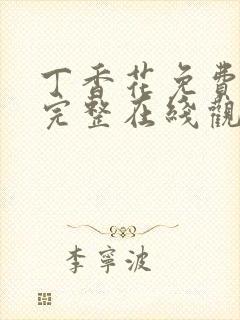 丁香花免費
完整在綫觀
李寧波